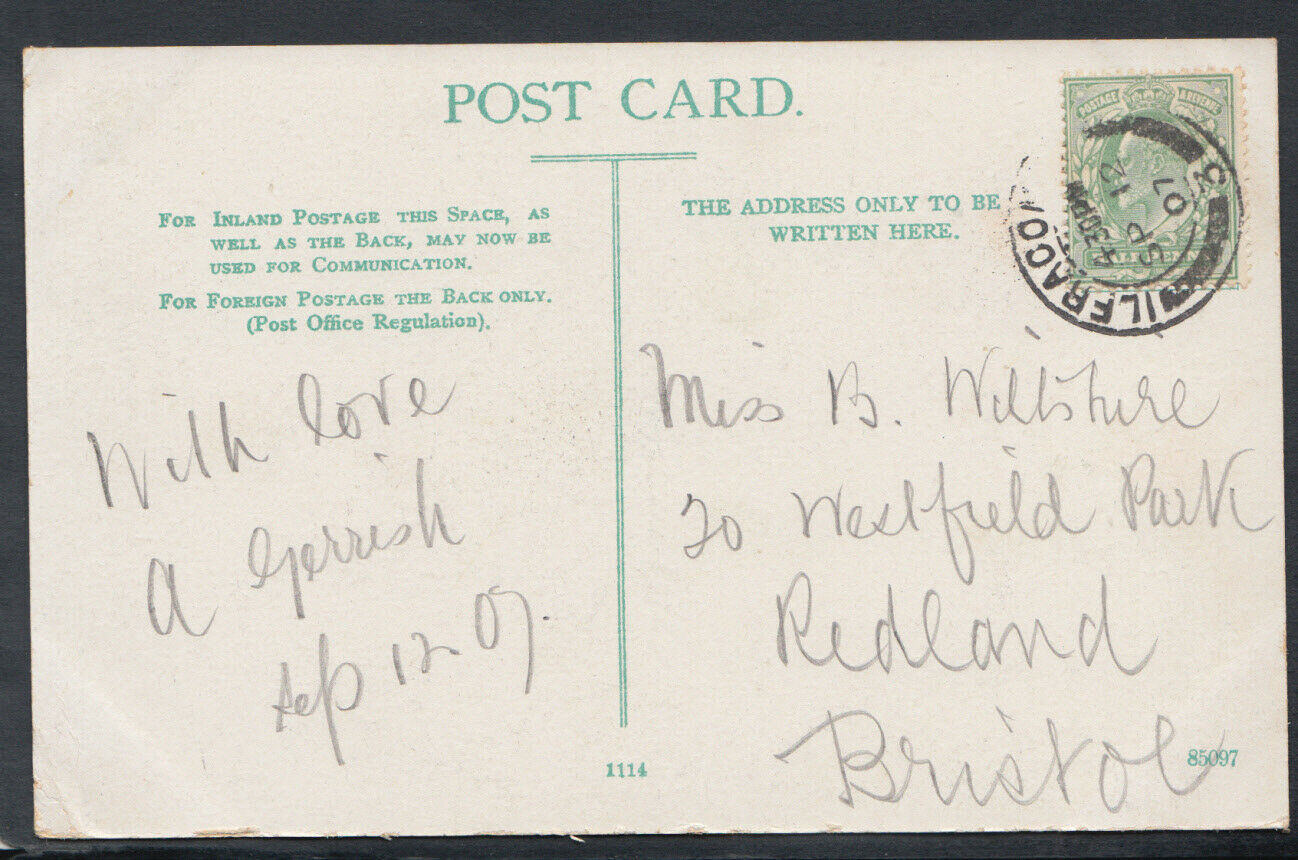 POST CARD.
FOR INLAND POSTAGE THIS SPACE, AS
WELL AS THE BACK, MAY NOW BE
USED FOR COMMUNICATION.
FOR FOREIGN POSTAGE THE BACK ONLY.
(Post Office Regulation).
THE ADDRESS ONLY TO BE
WRITTEN HERE.
POSTAGE & REVENUE
ILFRACO
4.30PM
SP 12
07
3
With love
A Gerrish
Sep 12 07.
Miss B. Wiltshire
20 Westfield Park
Redland
Bristol
1114
85097